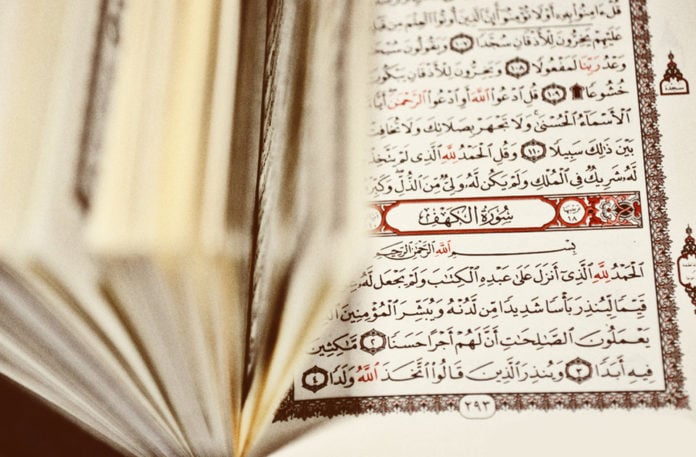 قُلْ ءَامِنُوا۟ بِهِۦٓ أَوْ لَا تُؤْمِنُوٓا۟ إِنَّ ٱلَّذِينَ أُوتُوا۟ ٱلْعِلْمَ مِن
عَلَيْهِمْ يَخِرُّونَ لِلْأَذْقَانِ سُجَّدًا ١٠٧ وَيَقُولُونَ
وَعْدُ رَبِّنَا لَمَفْعُولًا ١٠٨ وَيَخِرُّونَ لِلْأَذْقَانِ يَبْكُونَ
خُشُوعًا ۩ ١٠٩ قُلِ ٱدْعُوا۟ ٱللَّهَ أَوِ ٱدْعُوا۟ ٱلرَّحْمَٰنَ
ٱلْأَسْمَآءُ ٱلْحُسْنَىٰ وَلَا تَجْهَرْ بِصَلَاتِكَ وَلَا تُخَافِتْ
بَيْنَ ذَٰلِكَ سَبِيلًا ١١٠ وَقُلِ ٱلْحَمْدُ لِلَّهِ ٱلَّذِى لَمْ يَتَّخِذْ
لَّهُۥ شَرِيكٌ فِى ٱلْمُلْكِ وَلَمْ يَكُن لَّهُۥ وَلِىٌّ مِّنَ ٱلذُّلِّ وَكَبِّرْ
سجدة
سُورَةُ الْكَهْفِ
١٨
بِسْمِ ٱللَّهِ ٱلرَّحْمَٰنِ ٱلرَّحِيمِ
ٱلْحَمْدُ لِلَّهِ ٱلَّذِىٓ أَنزَلَ عَلَىٰ عَبْدِهِ ٱلْكِتَٰبَ وَلَمْ يَجْعَل لَّهُۥ
قَيِّمًا لِّيُنذِرَ بَأْسًا شَدِيدًا مِّن لَّدُنْهُ وَيُبَشِّرَ ٱلْمُؤْمِنِينَ
يَعْمَلُونَ ٱلصَّٰلِحَٰتِ أَنَّ لَهُمْ أَجْرًا حَسَنًا ٢ مَّٰكِثِينَ
فِيهِ أَبَدًا ٣ وَيُنذِرَ ٱلَّذِينَ قَالُوا۟ ٱتَّخَذَ ٱللَّهُ وَلَدًا ٤
٢٩٣